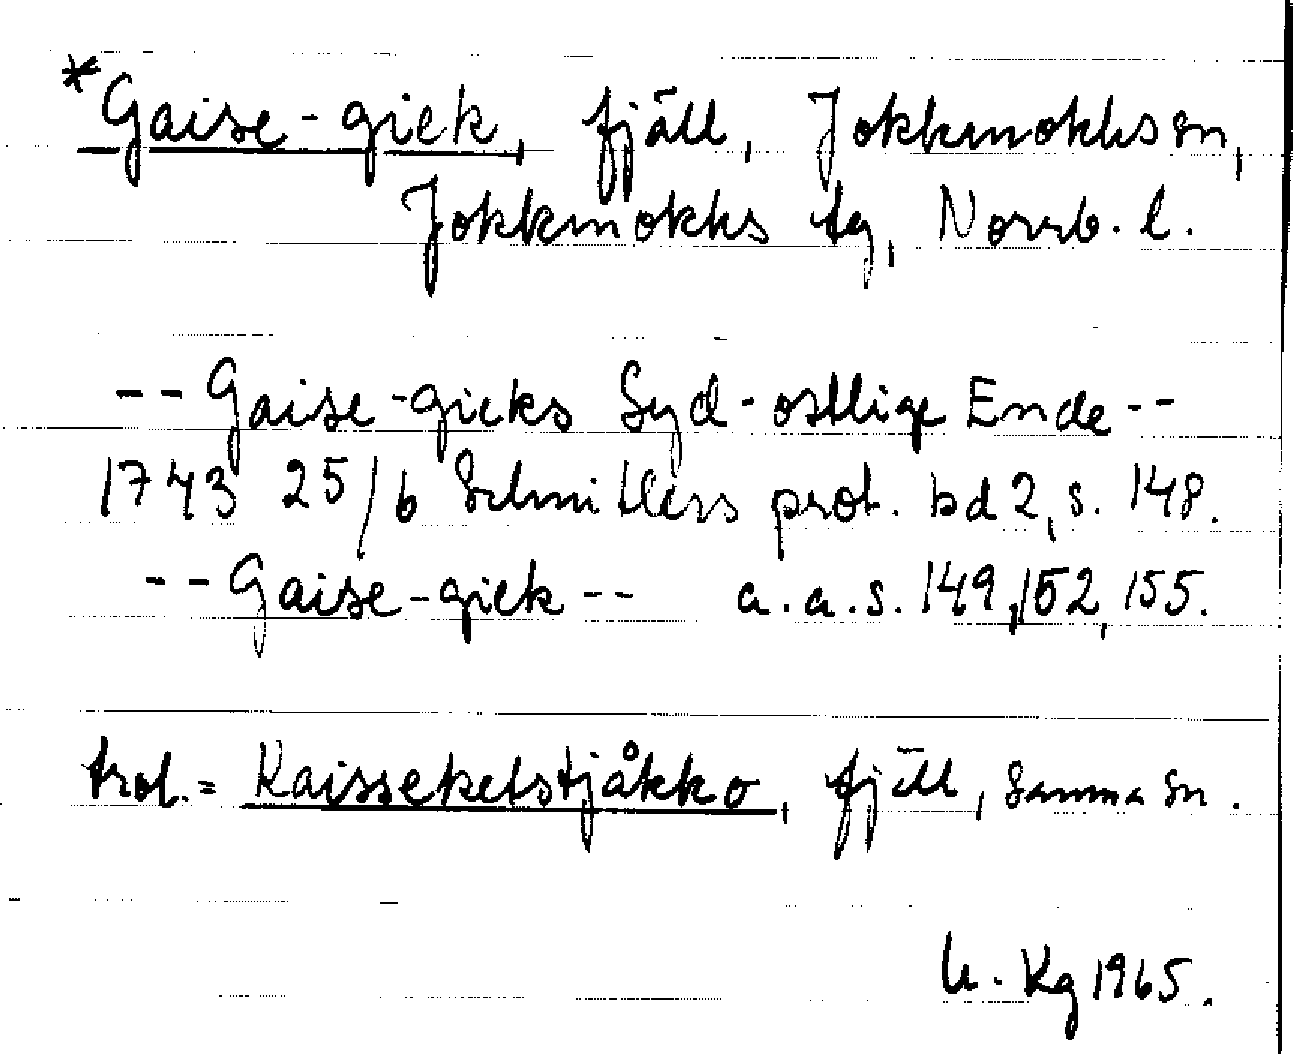 *Gaise-giek, fjäll, Jokkmokks sn,
Jokkmokks tg, Norrb. l.
-- Gaise-gieks Syd-ostlige Ende --
1743 25/6 Schnitlers prot. bd 2, s. 148.
-- Gaise-giek -- a.a.s. 149, 152, 155.
trol. = Kaisseketstjåkko, fjäll, samma sn.
U. Kg 1965.